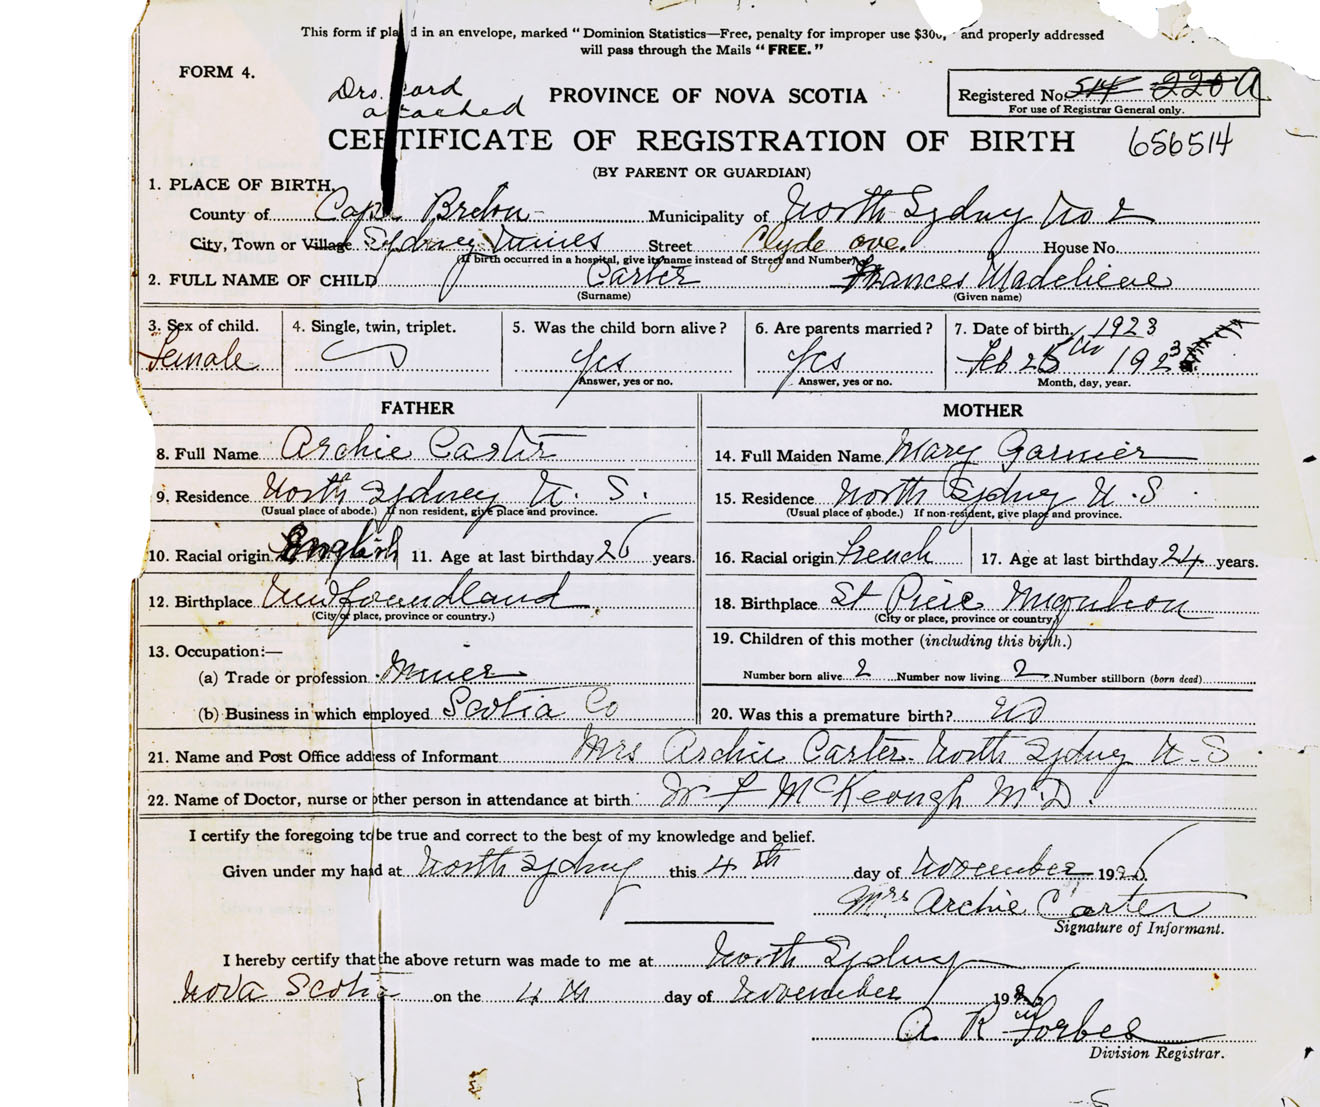 This form if placed in an envelope, marked "Dominion Statistics—Free, penalty for improper use $300," and properly addressed
will pass through the Mails "FREE."
FORM 4.
Drs. card
attached
PROVINCE OF NOVA SCOTIA
Registered No. 514 220 A
For use of Registrar General only.
CERTIFICATE OF REGISTRATION OF BIRTH
656514
(BY PARENT OR GUARDIAN)
1. PLACE OF BIRTH.
County of Cape Breton Municipality of North Sydney No 2
City, Town or Village Sydney Mines Street Clyde ave. House No.
(If birth occurred in a hospital, give its name instead of Street and Number)
2. FULL NAME OF CHILD Carter Frances Madelieve
(Surname) (Given name)
3. Sex of child. 4. Single, twin, triplet. 5. Was the child born alive? 6. Are parents married? 7. Date of birth. 1923
female S yes yes Feb 25th 1923
Answer, yes or no. Answer, yes or no. Month, day, year.
FATHER MOTHER
8. Full Name Archie Carter 14. Full Maiden Name Mary Garnier
9. Residence North Sydney N. S. 15. Residence North Sydney N. S
(Usual place of abode.) If non resident, give place and province. (Usual place of abode.) If non-resident, give place and province.
10. Racial origin English 11. Age at last birthday 26 years. 16. Racial origin French 17. Age at last birthday 24 years.
12. Birthplace Newfoundland 18. Birthplace St Pierc Miqoulion
(City or place, province or country.) (City or place, province or country.)
13. Occupation:— 19. Children of this mother (including this birth.)
(a) Trade or profession Miner Number born alive 2 Number now living 2 Number stillborn (born dead)
(b) Business in which employed Scotia Co 20. Was this a premature birth? no
21. Name and Post Office address of Informant Mrs Archie Carter North Sydney N. S
22. Name of Doctor, nurse or other person in attendance at birth Dr F McKeough M.D.
I certify the foregoing to be true and correct to the best of my knowledge and belief.
Given under my hand at North Sydney this 4th day of November 1926.
Mrs Archie Carter
Signature of Informant.
I hereby certify that the above return was made to me at North Sydney
Nova Scotia on the 4th day of November 1926
A R Forbes
Division Registrar.